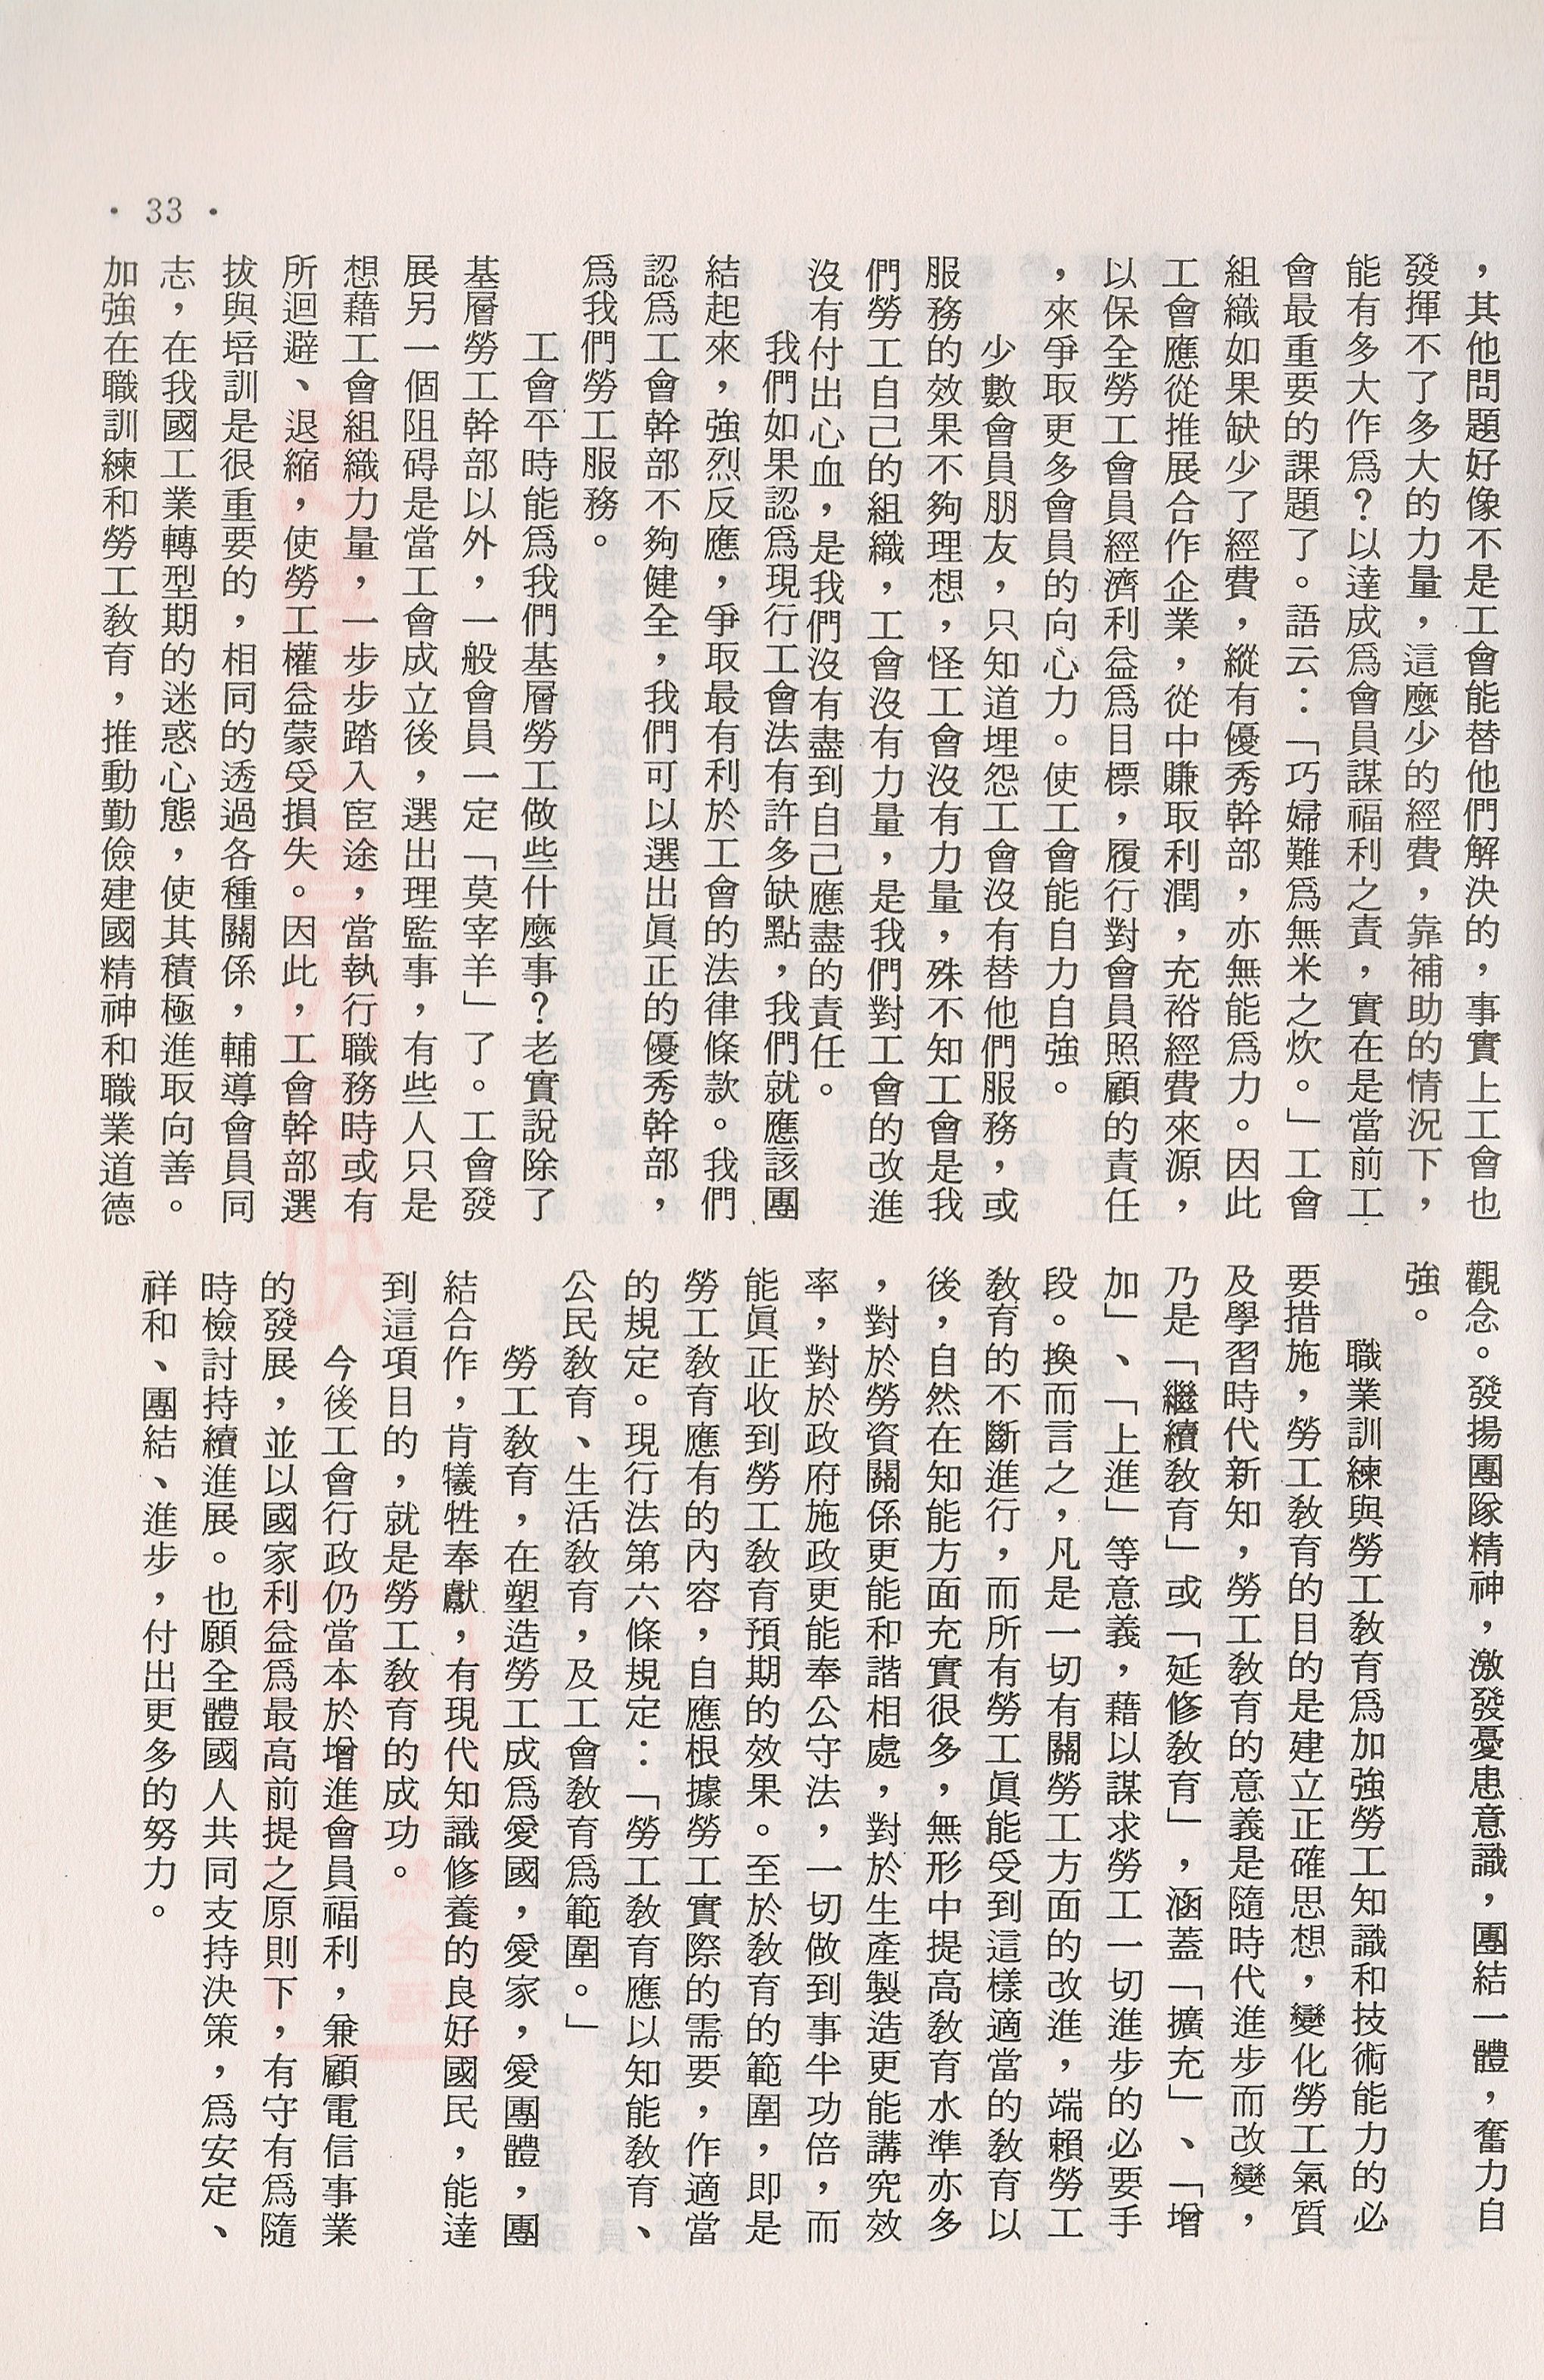 ，其他問題好像不是工會能替他們解決的，事實上工會也
發揮不了多大的力量，這麼少的經費，靠補助的情況下，
能有多大作爲？以達成爲會員謀福利之責，實在是當前工
會最重要的課題了。語云：「巧婦難爲無米之炊。」工會
組織如果缺少了經費，縱有優秀幹部，亦無能爲力。因此
工會應從推展合作企業，從中賺取利潤，充裕經費來源，
以保全勞工會員經濟利益爲目標，履行對會員照顧的責任
，來爭取更多會員的向心力。使工會能自力自強。
少數會員朋友，只知道埋怨工會沒有替他們服務，或
服務的效果不夠理想，怪工會沒有力量，殊不知工會是我
們勞工自己的組織，工會沒有力量，是我們對工會的改進
沒有付出心血，是我們沒有盡到自己應盡的責任。
我們如果認爲現行工會法有許多缺點，我們就應該團
結起來，強烈反應，爭取最有利於工會的法律條款。我們
認爲工會幹部不夠健全，我們可以選出眞正的優秀幹部，
爲我們勞工服務。
工會平時能爲我們基層勞工做些什麼事？老實說除了
基層勞工幹部以外，一般會員一定「莫宰羊」了。工會發
展另一個阻碍是當工會成立後，選出理監事，有些人只是
想藉工會組織力量，一步步踏入宦途，當執行職務時或有
所迴避、退縮，使勞工權益蒙受損失。因此，工會幹部選
拔與培訓是很重要的，相同的透過各種關係，輔導會員同
志，在我國工業轉型期的迷惑心態，使其積極進取向善。
加強在職訓練和勞工教育，推動勤儉建國精神和職業道德
觀念。發揚團隊精神，激發憂患意識，團結一體，奮力自
強。
職業訓練與勞工教育爲加強勞工知識和技術能力的必
要措施，勞工教育的目的是建立正確思想，變化勞工氣質
及學習時代新知，勞工教育的意義是隨時代進步而改變，
乃是「繼續教育」或「延修教育」，涵蓋「擴充」、「增
加」、「上進」等意義，藉以謀求勞工一切進步的必要手
段。換而言之，凡是一切有關勞工方面的改進，端賴勞工
教育的不斷進行，而所有勞工眞能受到這樣適當的教育以
後，自然在知能方面充實很多，無形中提高教育水準亦多
，對於勞資關係更能和諧相處，對於生產製造更能講究效
率，對於政府施政更能奉公守法，一切做到事半功倍，而
能眞正收到勞工教育預期的效果。至於教育的範圍，即是
勞工教育應有的內容，自應根據勞工實際的需要，作適當
的規定。現行法第六條規定：「勞工教育應以知能教育、
公民教育、生活教育，及工會教育爲範圍。」
勞工教育，在塑造勞工成爲愛國，愛家，愛團體，團
結合作，肯犧牲奉獻，有現代知識修養的良好國民，能達
到這項目的，就是勞工教育的成功。
今後工會行政仍當本於增進會員福利，兼顧電信事業
的發展，並以國家利益爲最高前提之原則下，有守有爲隨
時檢討持續進展。也願全體國人共同支持決策，爲安定、
祥和、團結、進步，付出更多的努力。
• 33 •